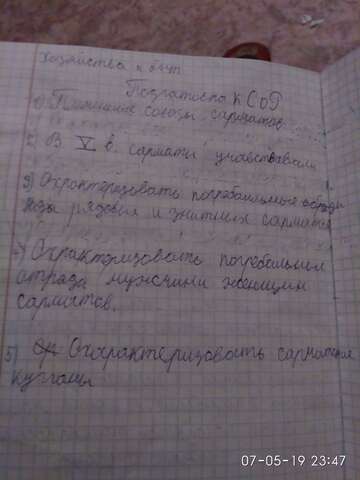 Хозяйства и быт
Подготовка к СОР
1) Племенные союзы сарматов
2) В V в. сарматы участвовали
3) Охрактеризовать погребальные обряды
рядовых и знатных сарматов
4) Охрактеризовать погребальные
отряда мужчины женщин
сарматов.
5) Охарактеризовать сарматские
курганы
07-05-19 23:47